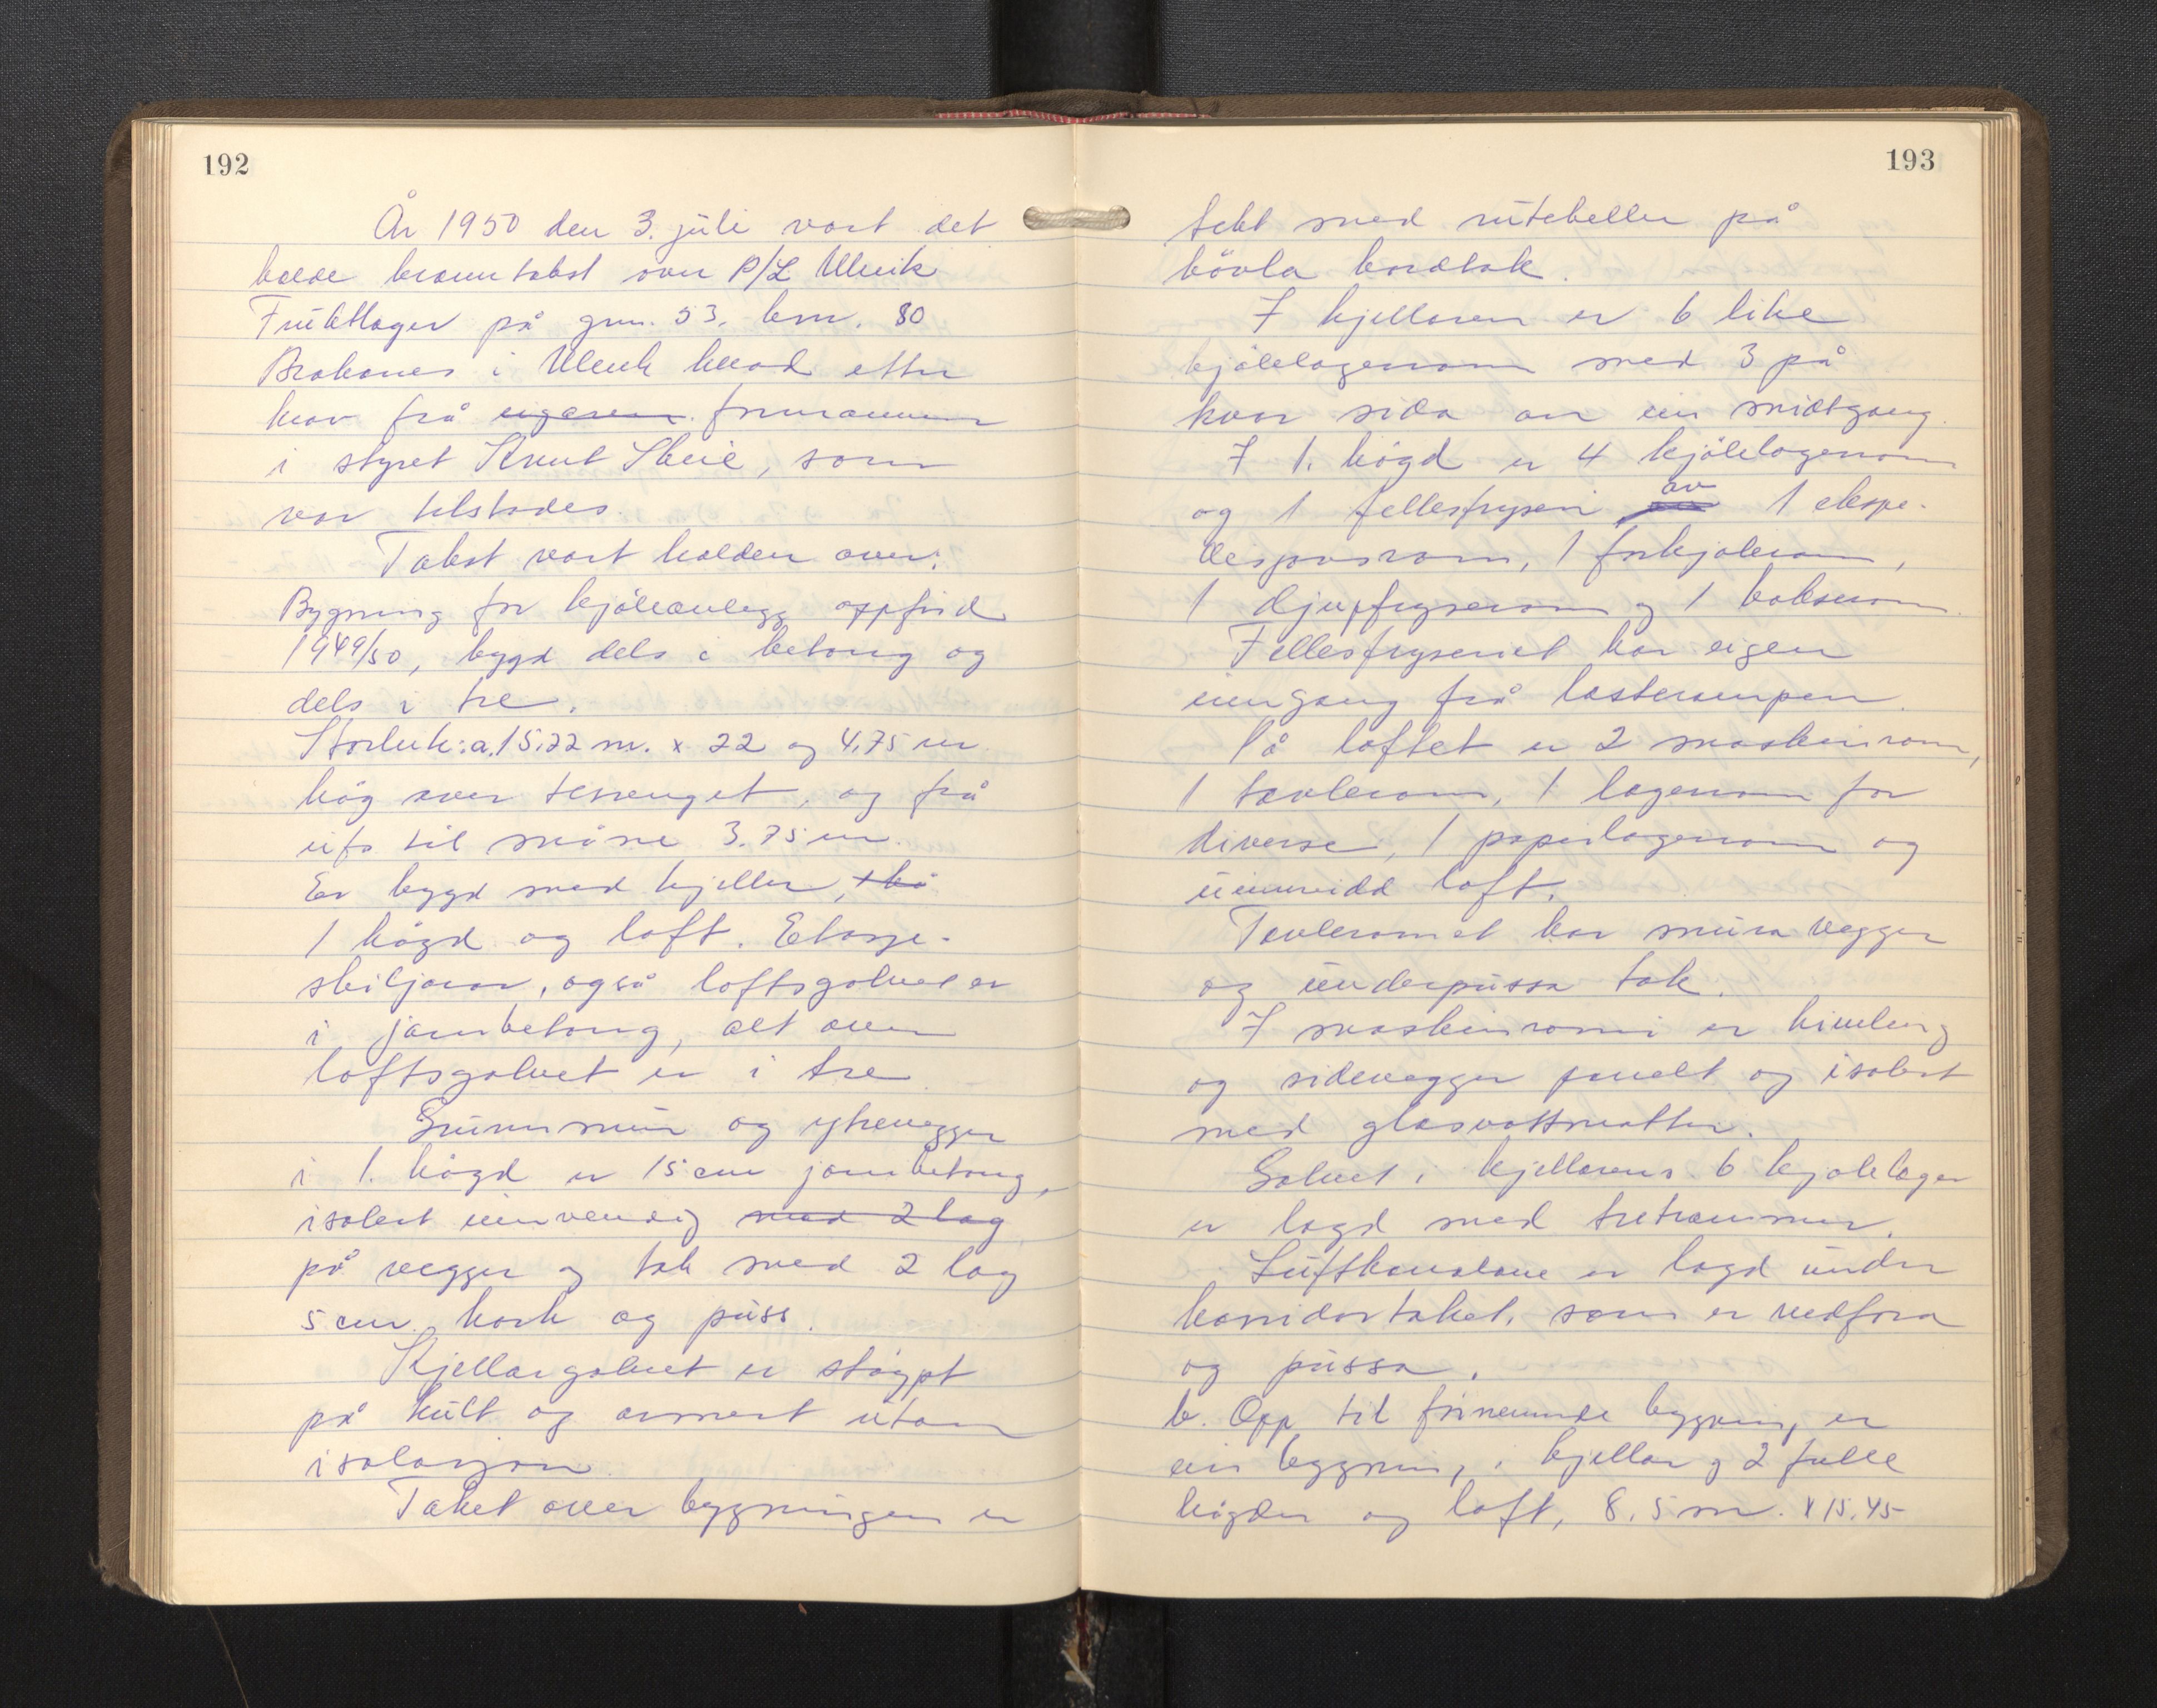 192
År 1950 den 3. juli vart det
halde branntakst over P/L Ulvik
Fruktlager på gnr. 53, bnr. 80
Brakanes i Ulvik herad etter
krav frå eigaren formannen
i styret Knut Skeie, som
var tilstades.
Takst vart halden over:
Bygning for kjöleanlegg oppförd
1949/50, bygd dels i betong og
dels i tre.
Storleik: a. 15,22 m. x 22 og 4,75 m
høg over terrenget, og frå
ufs til möne 3.75 m.
Er bygd med kjellar,
1 høgd og loft. Etasje-
skiljarar, også loftsgolvet er
i jarnbetong, alt over
loftsgolvet er i tre
Grunnmur og ytrevegger
i 1. høgd er 15 cm jarnbetong,
isolert innvendig med 2 lag
på vegger og tak med 2 lag
5 cm. kork og puss.
Kjellargolvet er støypt
på kult og armert utan
isolasjon.
Taket over bygningen er
193
tekt med ruteheller på
hövla bordtak.
I kjellaren er 6 like
kjölelagerrom med 3 på
kvar sida av ein midtgang.
I 1. høgd er 4 kjölelagerrom
og 1 fellesfryseri av 1 ekspe-
desjonsrom, 1 forkjölerom,
1 djupfryserom og 1 bokserom.
Fellesfryseriet har eigen
inngang frå lasterampen.
På loftet er 2 maskinrom,
1 tavlerom, 1 lagerrom for
diverse, 1 papirlagerrom og
uinnreidd loft.
Tavleromet har mura vegger
og underpussa tak.
I maskinromi er himling
og sidevegger panelt og isolert
med glasvattmatter.
Golvet i kjellarens 6 kjølelager
er lagd med tretrammer.
Luftkanalane er lagd under
korridortaket, som er nedfora
og pussa.
b. Opp til fyrnemnde bygning er
ein bygning, i kjellar og 2 fulle
høgder og loft, 8,5 m. x 15,45